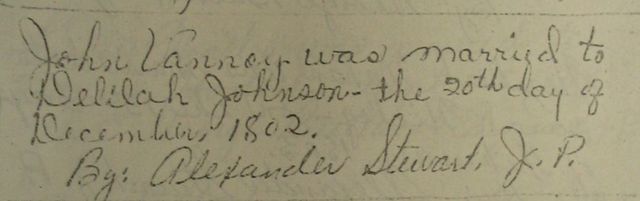 John Vannoy was married to
Delilah Johnson - the 20th day of
December, 1802.
By: Alexander Stewart, J. P.